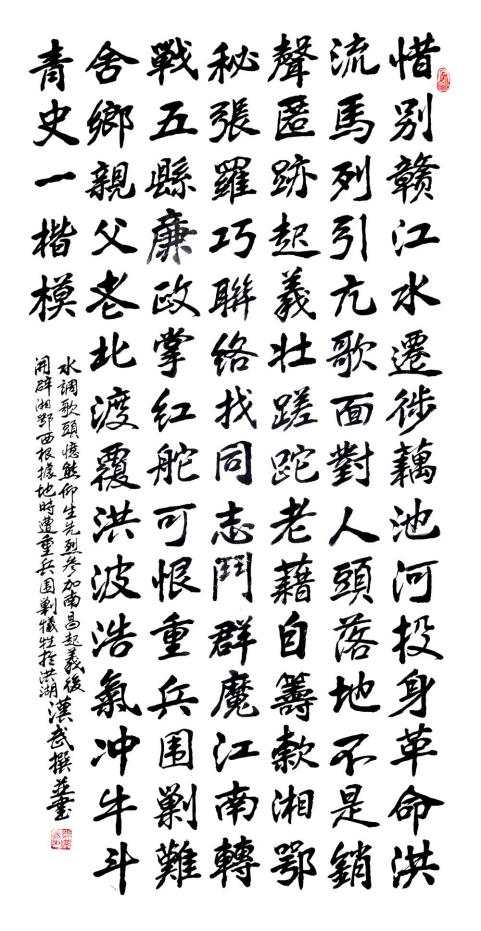 惜别赣江水遷徙藕池河投身革命洪
流馬列引亢歌面對人頭落地不是銷
聲匿跡起義壯蹉跎老藉自籌款湘鄂
秘張羅巧聯絡找同志鬥群魔江南轉
戰五縣廉政掌红舵可恨重兵围剿難
舍鄉親父老北渡覆洪波浩氣冲牛斗
青史一楷模
水調歌頭憶熊仰生先烈參加南昌起義後
開辟湘鄂西根據地時遭重兵围剿犧牲於洪湖漢武撰並書